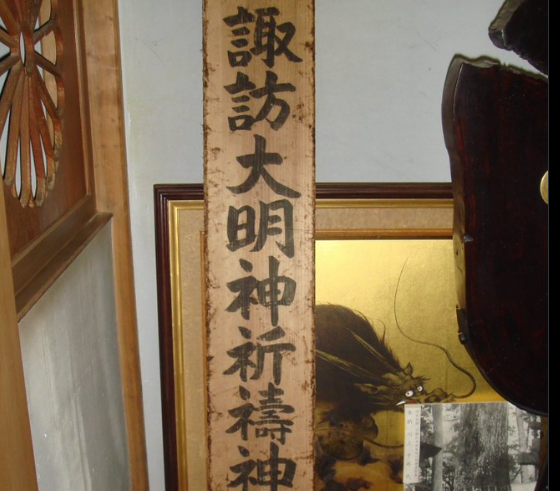 諏訪大明神祈禱神